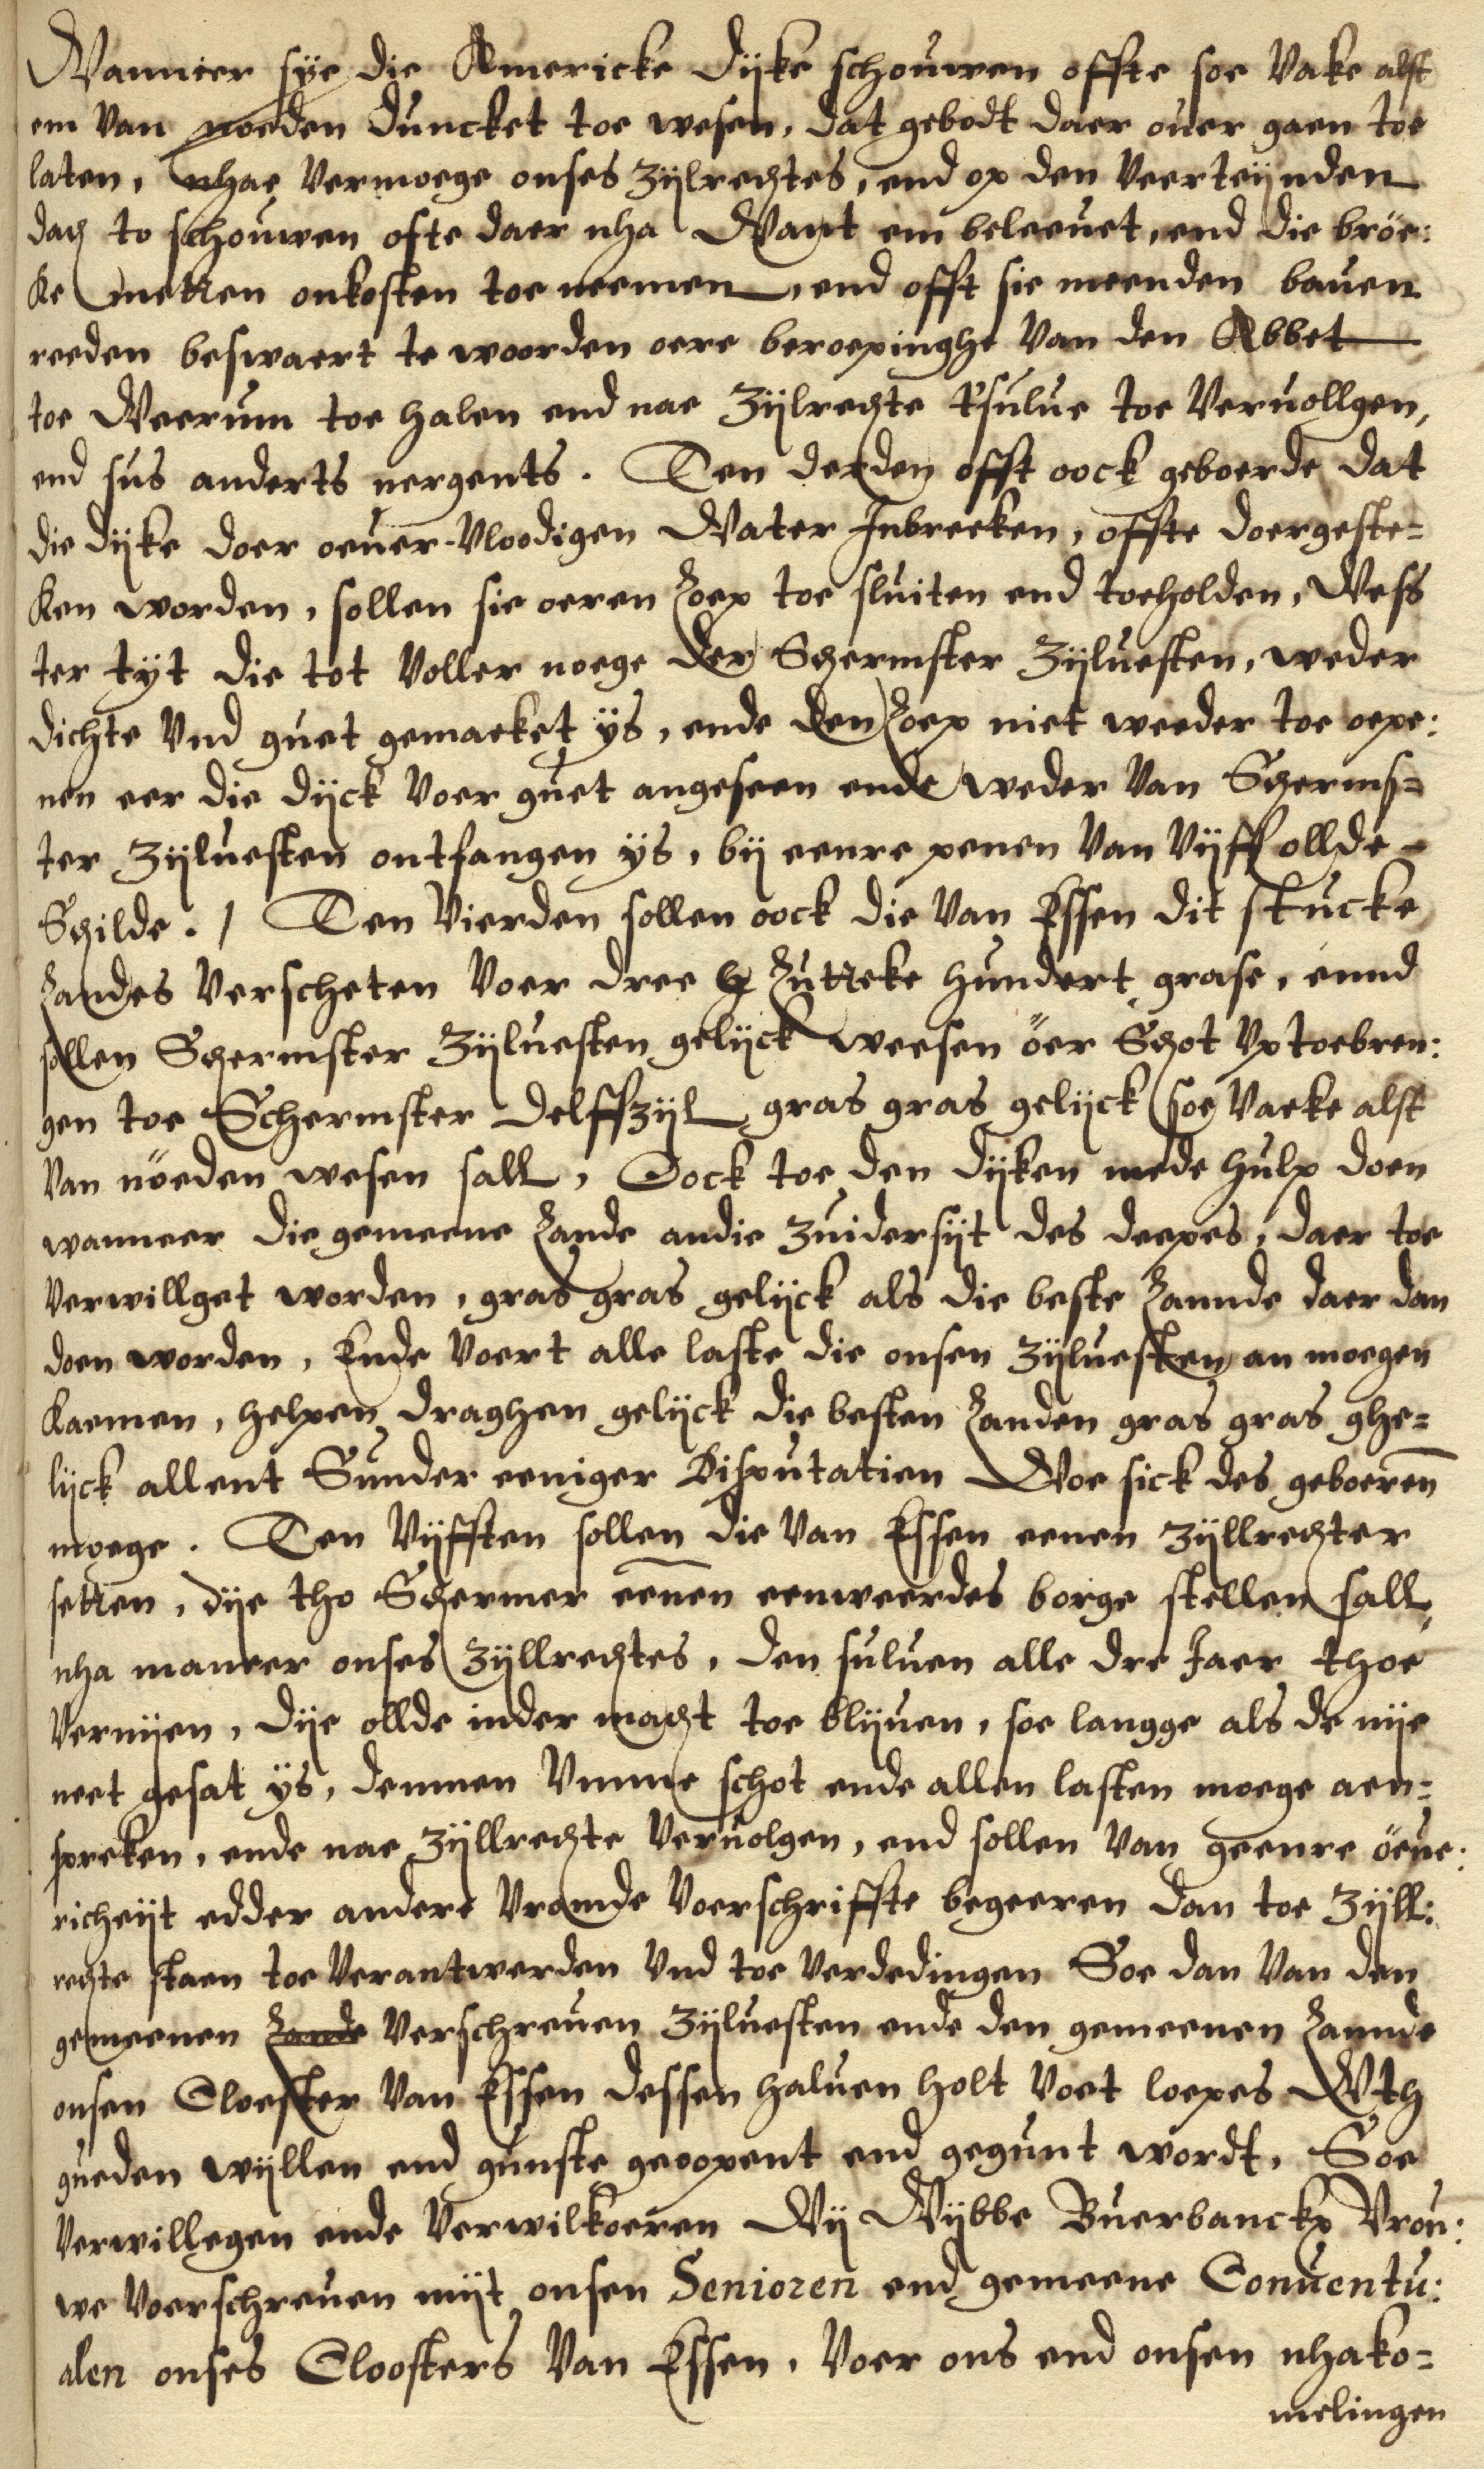 Wanneer sÿe die Americke Dijke schouwen offte soe Vake alst
em Van noeden duncket toe wesen, dat gebodt daer ouer gaen toe
laten, nhae Vermoege onses Zijlrechtes, end op den Veerteijnden
dach to schouwen ofte daer nha Want em beleeuet, end die bröe:
ke metten onkosten toe neemen, end offt sie meenden bauen
reeden beswaert te woorden oere beroepinghe Van den Abbet
toe Weerum toe halen end nae Zijlrechte t'sulue toe Veruollgen,
end sus anderts nergents. Ten derden offt oock geboerde dat
die dijke doer oeuer-Vloodigen Water Inbreeken, offte doergeste=
ken worden, sollen sie oeren Loep toe sluiten end toeholden, Wess
ter tijt die tot Voller noege der Schermster Zijluesten, weder
dichte Vnd guet gemaeket ÿs, ende den Loep niet weeder toe oepe:
nen eer die dijck Voer guet angeseen ende weder Van Scherms=
ter Zijluesten ontfangen ÿs, bij eenre penen Van Vijff ollde
Schilde. / Ten Vierden sollen oock die Van Essen dit stucke
Landes Verscheten Voer dree Lutteke hundert grase, ennd
sollen Schermster Zijluesten gelijck weesen öer Schot Vptoebren:
gen toe Schermster Delffzijl gras gras gelijck soe Vaeke alst
Van nöeden wesen sall, Oock toe den Dijken mede hulp doen
wanneer die gemeene Lande andie Zuidersijt des deepes, daer toe
Verwillget worden, gras gras gelijck als die beste Lannde daer dan
doen worden, Ende Voert alle laste die onsen Zijluesten an moegen
kaemen, helpen draghen gelijck die besten Landen gras gras ghe=
lijck allent Sunder eeniger Disputatien Woe sick des geboeren̄
moege. Ten Vijfften sollen die Van Essen eenen Zijllrechter
setten, dije tho Schermer een̄en eenweerdes borge stellen sall,
nha maneer onses Zijllrechtes, den suluen alle dre Jaer thoe
Vernijen, dije ollde inder macht toe blijuen, soe langge als de nije
neet gesat ÿs, demmen Vmme schot ende allen lasten moege aen=
spreken, ende nae Zijllrechte Veruolgen, end sollen Van geenre öeue:
richeijt edder andere Vromde Voerschriffte begeeren dan toe Zijll:
rechte staen toe Verantwerden Vnd toe Verdedingen Soe dan Van den
gemeenen Lande Verschreuen Zijluesten ende den gemeenen Lannde
onsen Cloester Van Essen dessen haluen holt Voet loepes Wth
gueden wijllen end gunste geoopent end gegunt wordt, Soe
Verwillegen ende Verwilkoeren Wij Wijbbe Buerbanckx Vrou:
we Voerschreuen mijt onsen Senioren end gemeene Conuentu:
alen onses Cloosters Van Essen, Voer ons end onsen nhako=
melingen